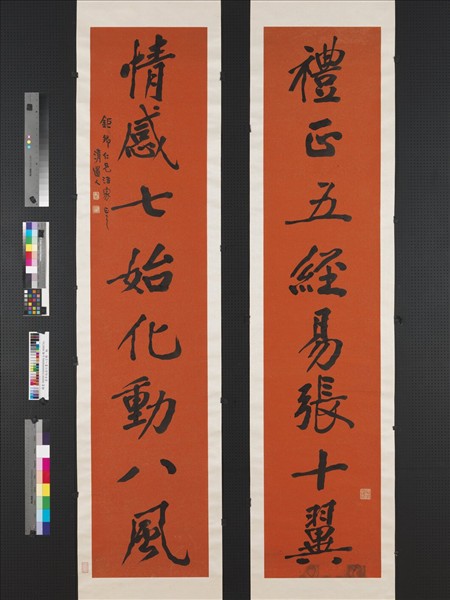 禮正五經易張十翼
情感七始化動八風
清道人